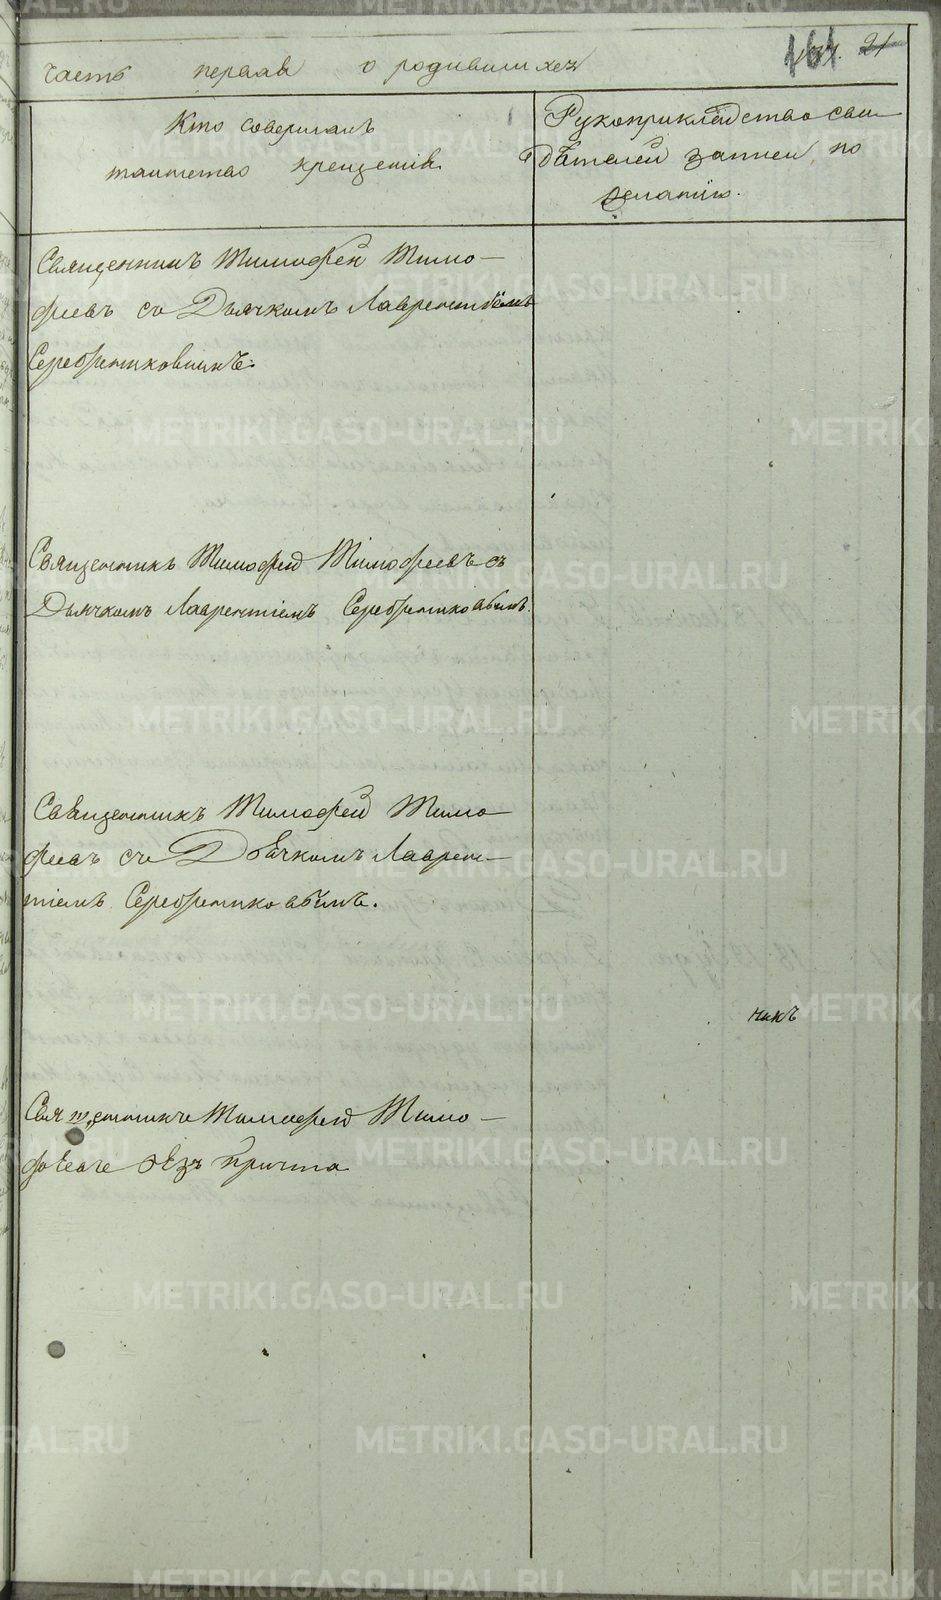 161. 21
часть первая о родившихся
Кто совершалъ
таинство крещенія
Рукоприкладство сви
дѣтелей записи по
желанію.
Священникъ Тимофей Тимо-
феевъ съ Дьячкомъ Лаврентіемъ
Серебрениковымъ.
Священникъ Тимофей Тимофеевъ съ
Дьячкомъ Лаврентіемъ Серебрениковымъ.
Священникъ Тимофей Тимо
феевъ съ Дьячкомъ Лаврен-
тіемъ Серебрениковымъ.
никъ
Священникъ Тимофей Тимо-
феевъ безъ причта
METRIKI.GASO-URAL.RU